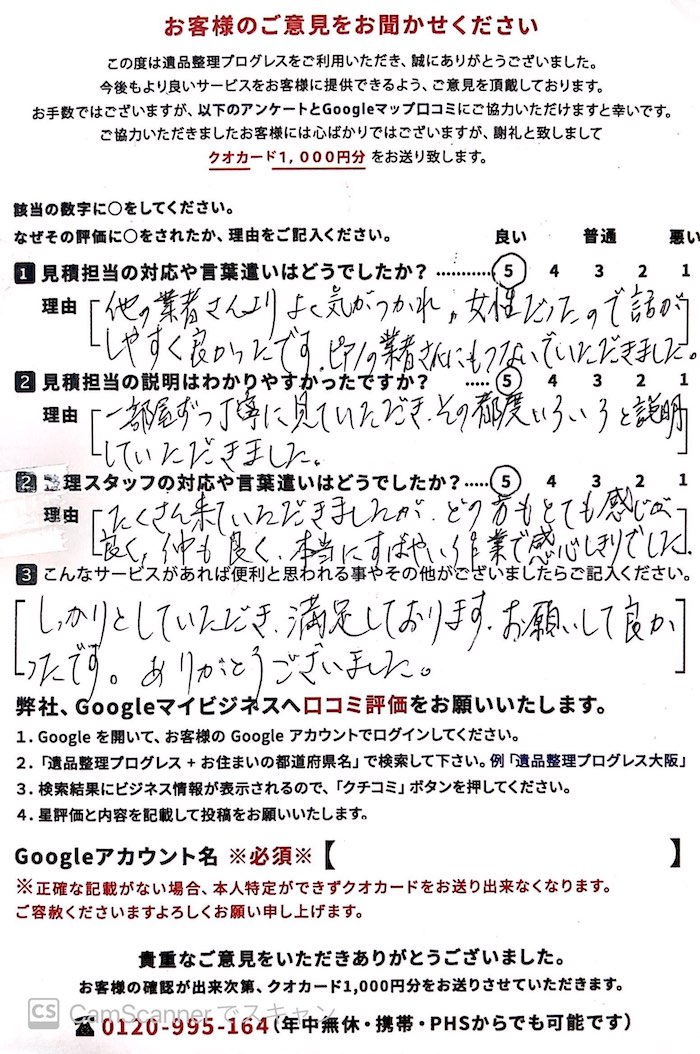 お客様のご意見をお聞かせください
この度は遺品整理プログレスをご利用いただき、誠にありがとうございました。
今後もより良いサービスをお客様に提供できるよう、ご意見を頂戴しております。
お手数ではございますが、以下のアンケートとGoogleマップ口コミにご協力いただけますと幸いです。
ご協力いただきましたお客様には心ばかりではございますが、謝礼と致しまして
クオカード1,000円分 をお送り致します。
該当の数字に〇をしてください。
なぜその評価に〇をされたか、理由をご記入ください。 良い 普通 悪い
1 見積担当の対応や言葉遣いはどうでしたか？ ............ 5 4 3 2 1
理由 他の業者さんより よく気がつかれ、女性だったので話が
しやすく良かったです。ピアノの業者さんにもつないでいただきました。
2 見積担当の説明はわかりやすかったですか？ ...... 5 4 3 2 1
理由 一部屋ずつ丁寧に見ていただき、その都度いろいろと説明
していただきました。
2 整理スタッフの対応や言葉遣いはどうでしたか？...... 5 4 3 2 1
理由 たくさん来ていただきましたが、どの方もとても感じが
良く、仲も良く、本当にすばやい作業で感心しきりでした。
3 こんなサービスがあれば便利と思われる事やその他がございましたらご記入ください。
しっかりとしていただき、満足しております。お願いして良か
ったです。ありがとうございました。
弊社、Googleマイビジネスへ口コミ評価をお願いいたします。
1. Google を開いて、お客様の Google アカウントでログインしてください。
2.「遺品整理プログレス + お住まいの都道府県名」で検索して下さい。例「遺品整理プログレス大阪」
3. 検索結果にビジネス情報が表示されるので、「クチコミ」ボタンを押してください。
4. 星評価と内容を記載して投稿をお願いいたします。
Googleアカウント名 ※必須※【 】
※正確な記載がない場合、本人特定ができずクオカードをお送り出来なくなります。
ご容赦くださいますよろしくお願い申し上げます。
貴重なご意見をいただきありがとうございました。
お客様の確認が出来次第、クオカード1,000円分をお送りさせていただきます。
CS CamScanner でスキャン
☎0120-995-164(年中無休・携帯・PHSからでも可能です)